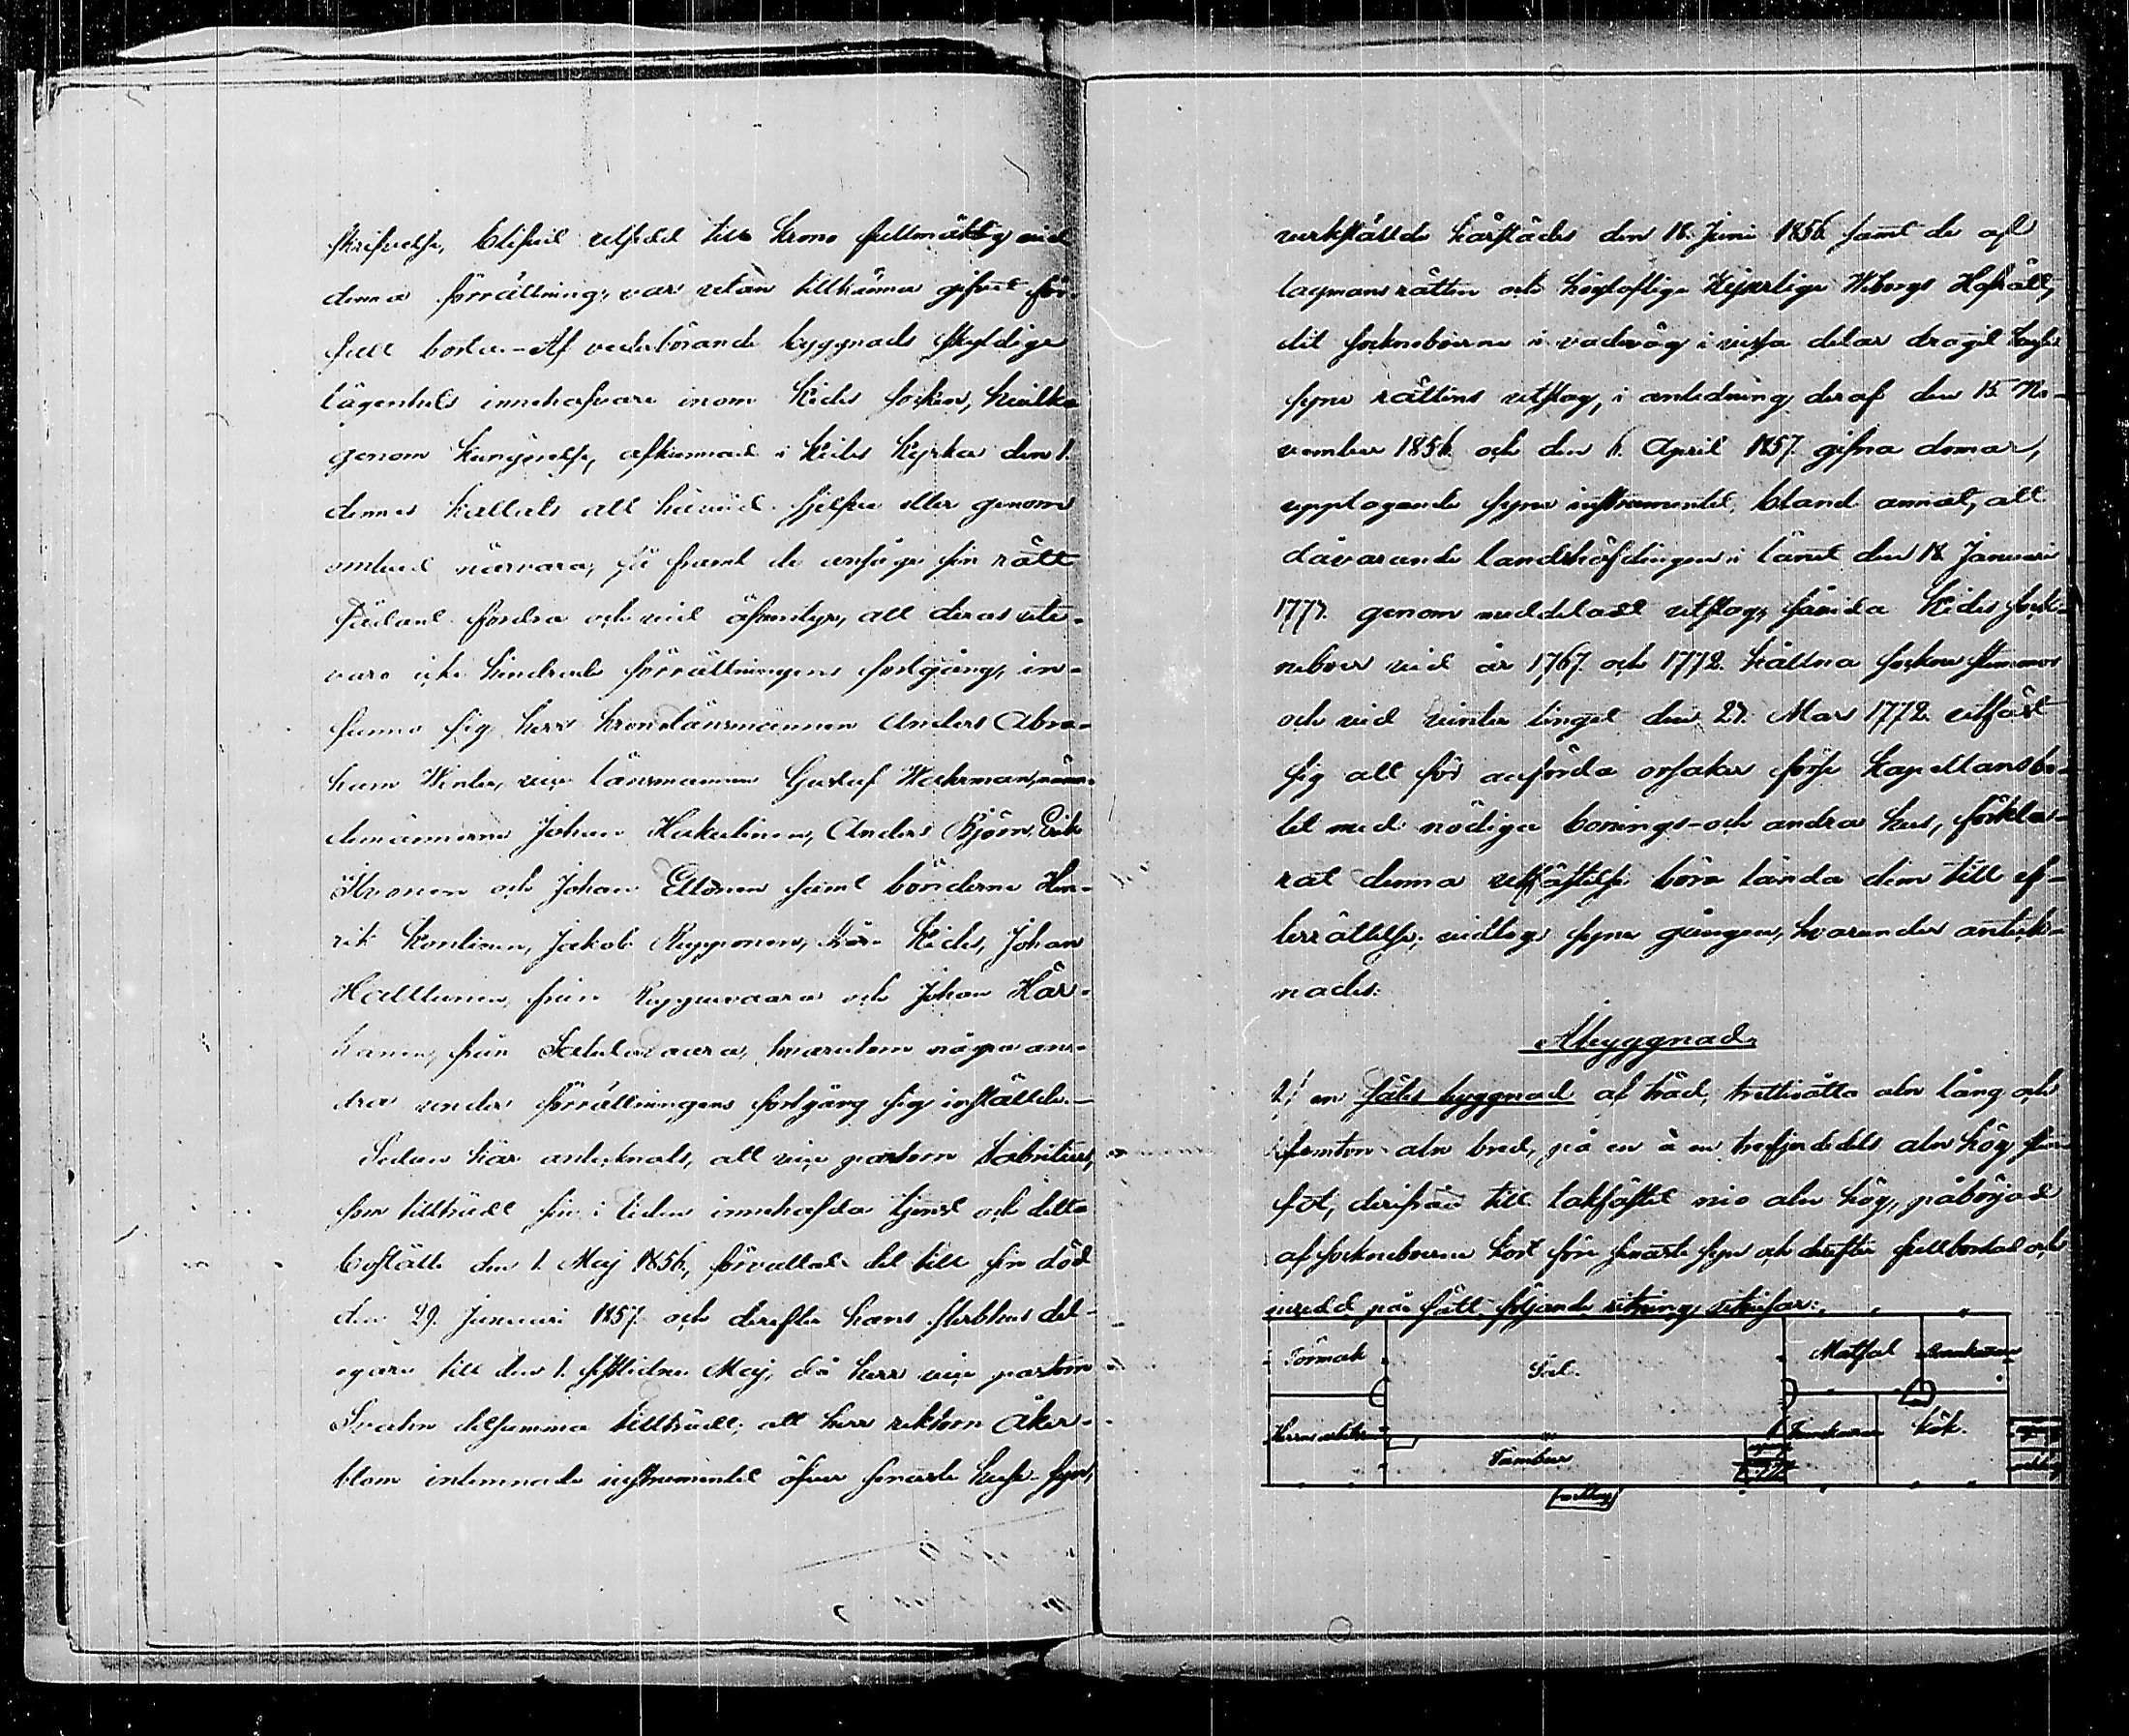 skrifvelse, blifvit utsedd till krono fullmäktig vid
denna förrättning, var utan tillkänna gifvet för-
fall borta. - Af vederbörande byggnads skyldige
lägenhets innehafvare inom Kides socken, hvilka
genom kungörelse, afkunnad i Kides kyrka den 1.
dennes kallats att härvid sjelfve eller genom
ombud närvara, så framt de ansågo sin rätt
sådant fordra och vid äfventyr, att deras ute-
varo icke hindrade förrättningens fortgång, in-
funno sig herr kronolänsmannen Anders Abra-
ham Winter, vice länsmannen Gustaf Wahrman, nämn-
demännerne Johan Hakulinen, Anders Björn, Erik
Ikonen och Johan Ellonen samt bönderne Hen-
rik Kontinen, Jakob Rupponen, från Kides, Johan
Halttunen, från Puggenvaara och Johan Kär-
hänen, från Satulavaara, hvarutom några an-
dra under förrättningens fortgång sig inställde. -
Sedan här antecknats, att vice pastorn Fabritius,
som tillträdt sin i tiden innehafda tjenst och detta
boställe den 1. Maj 1856, förvaltat det till sin död
den 29. Januari 1857 och derefter hans sterbhus del-
egare till den 1. sistlidne Maj, då herr vice pastorn
Svahn detsamma tillträdt; att herr rektorn Åker-
blom inlemnade instrumentet öfver senaste huse syn,
verkställde härstädes den 18. Juni 1856 samt de af
lagmansrätten och högloflige Kejserlige Wiborgs Hofrätt,
dit sockneboerne i vadeväg i vissa delar dragit lagha
syne rättens utslag, i anledning deraf den 15 No-
vember 1856 och den 6. April 1857. gifna domar,
upptagande syne instrumentet, bland annat, att
dåvarande landshöfdingen i länet den 18 Januari
1777. genom meddeladt utslag, sävida Kides sock-
neboer vid år 1767. och 1772. hållna sockne stemmor
och vid vinter tinget den 27. Mars 1772. utfäst
sig att för anförda orsaker förse kapellansbo-
let med nödiga bonings- och andra hus, förkla-
rat denna utfästelse böra lända dem till ef-
terrättelse; vidtogs syne gången, hvarunder anteck-
nades:
Åbyggnad.
1/ en sätes byggnad af träd, trettioåtta aln lång och
femton aln bred, på en à en trefjerdedels aln hög sten
fot, derifrån till takfästet nio aln hög, påbörjad
af socknboerne kort före senaste syn och derefter fullbordad och
inredd på sätt följande ritning utvisar:
Förmak
Sal.
Matsal
Barnkammare
Herrns arbetsrum
Tambur
uppg.
Sängkammare
Kök.